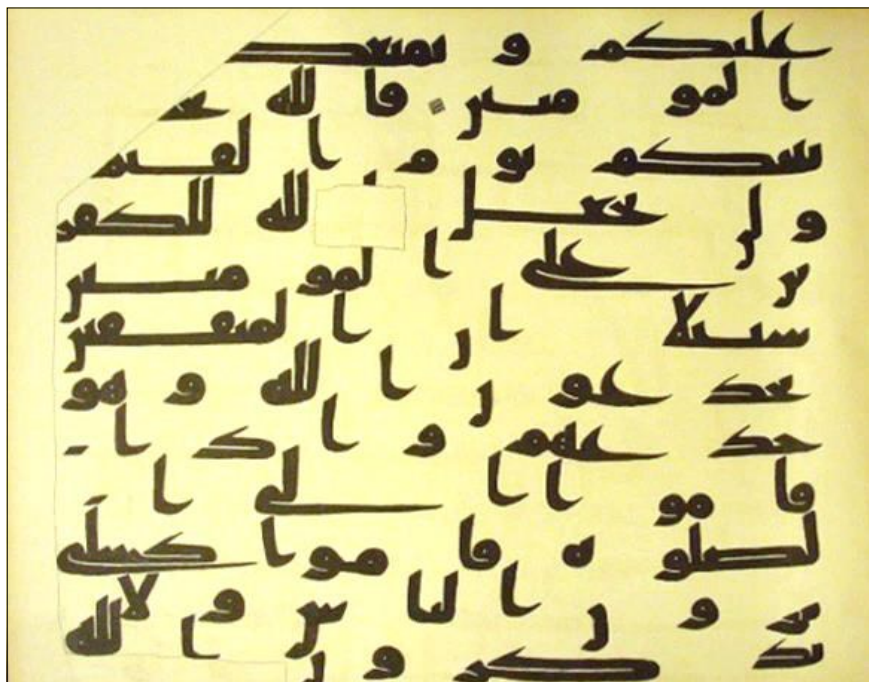 عليكم و نمنعك
المومنين فالله يح
بينكم يوم القيم
و لن يجعل الله للكفر
ين على المومنين
سبيلا ان المنفقين
يخدعون الله و هو
خدعهم و اذا
قاموا الى ا
لصلوة قاموا كسلى
يرون الناس و لا
يذكرون الله